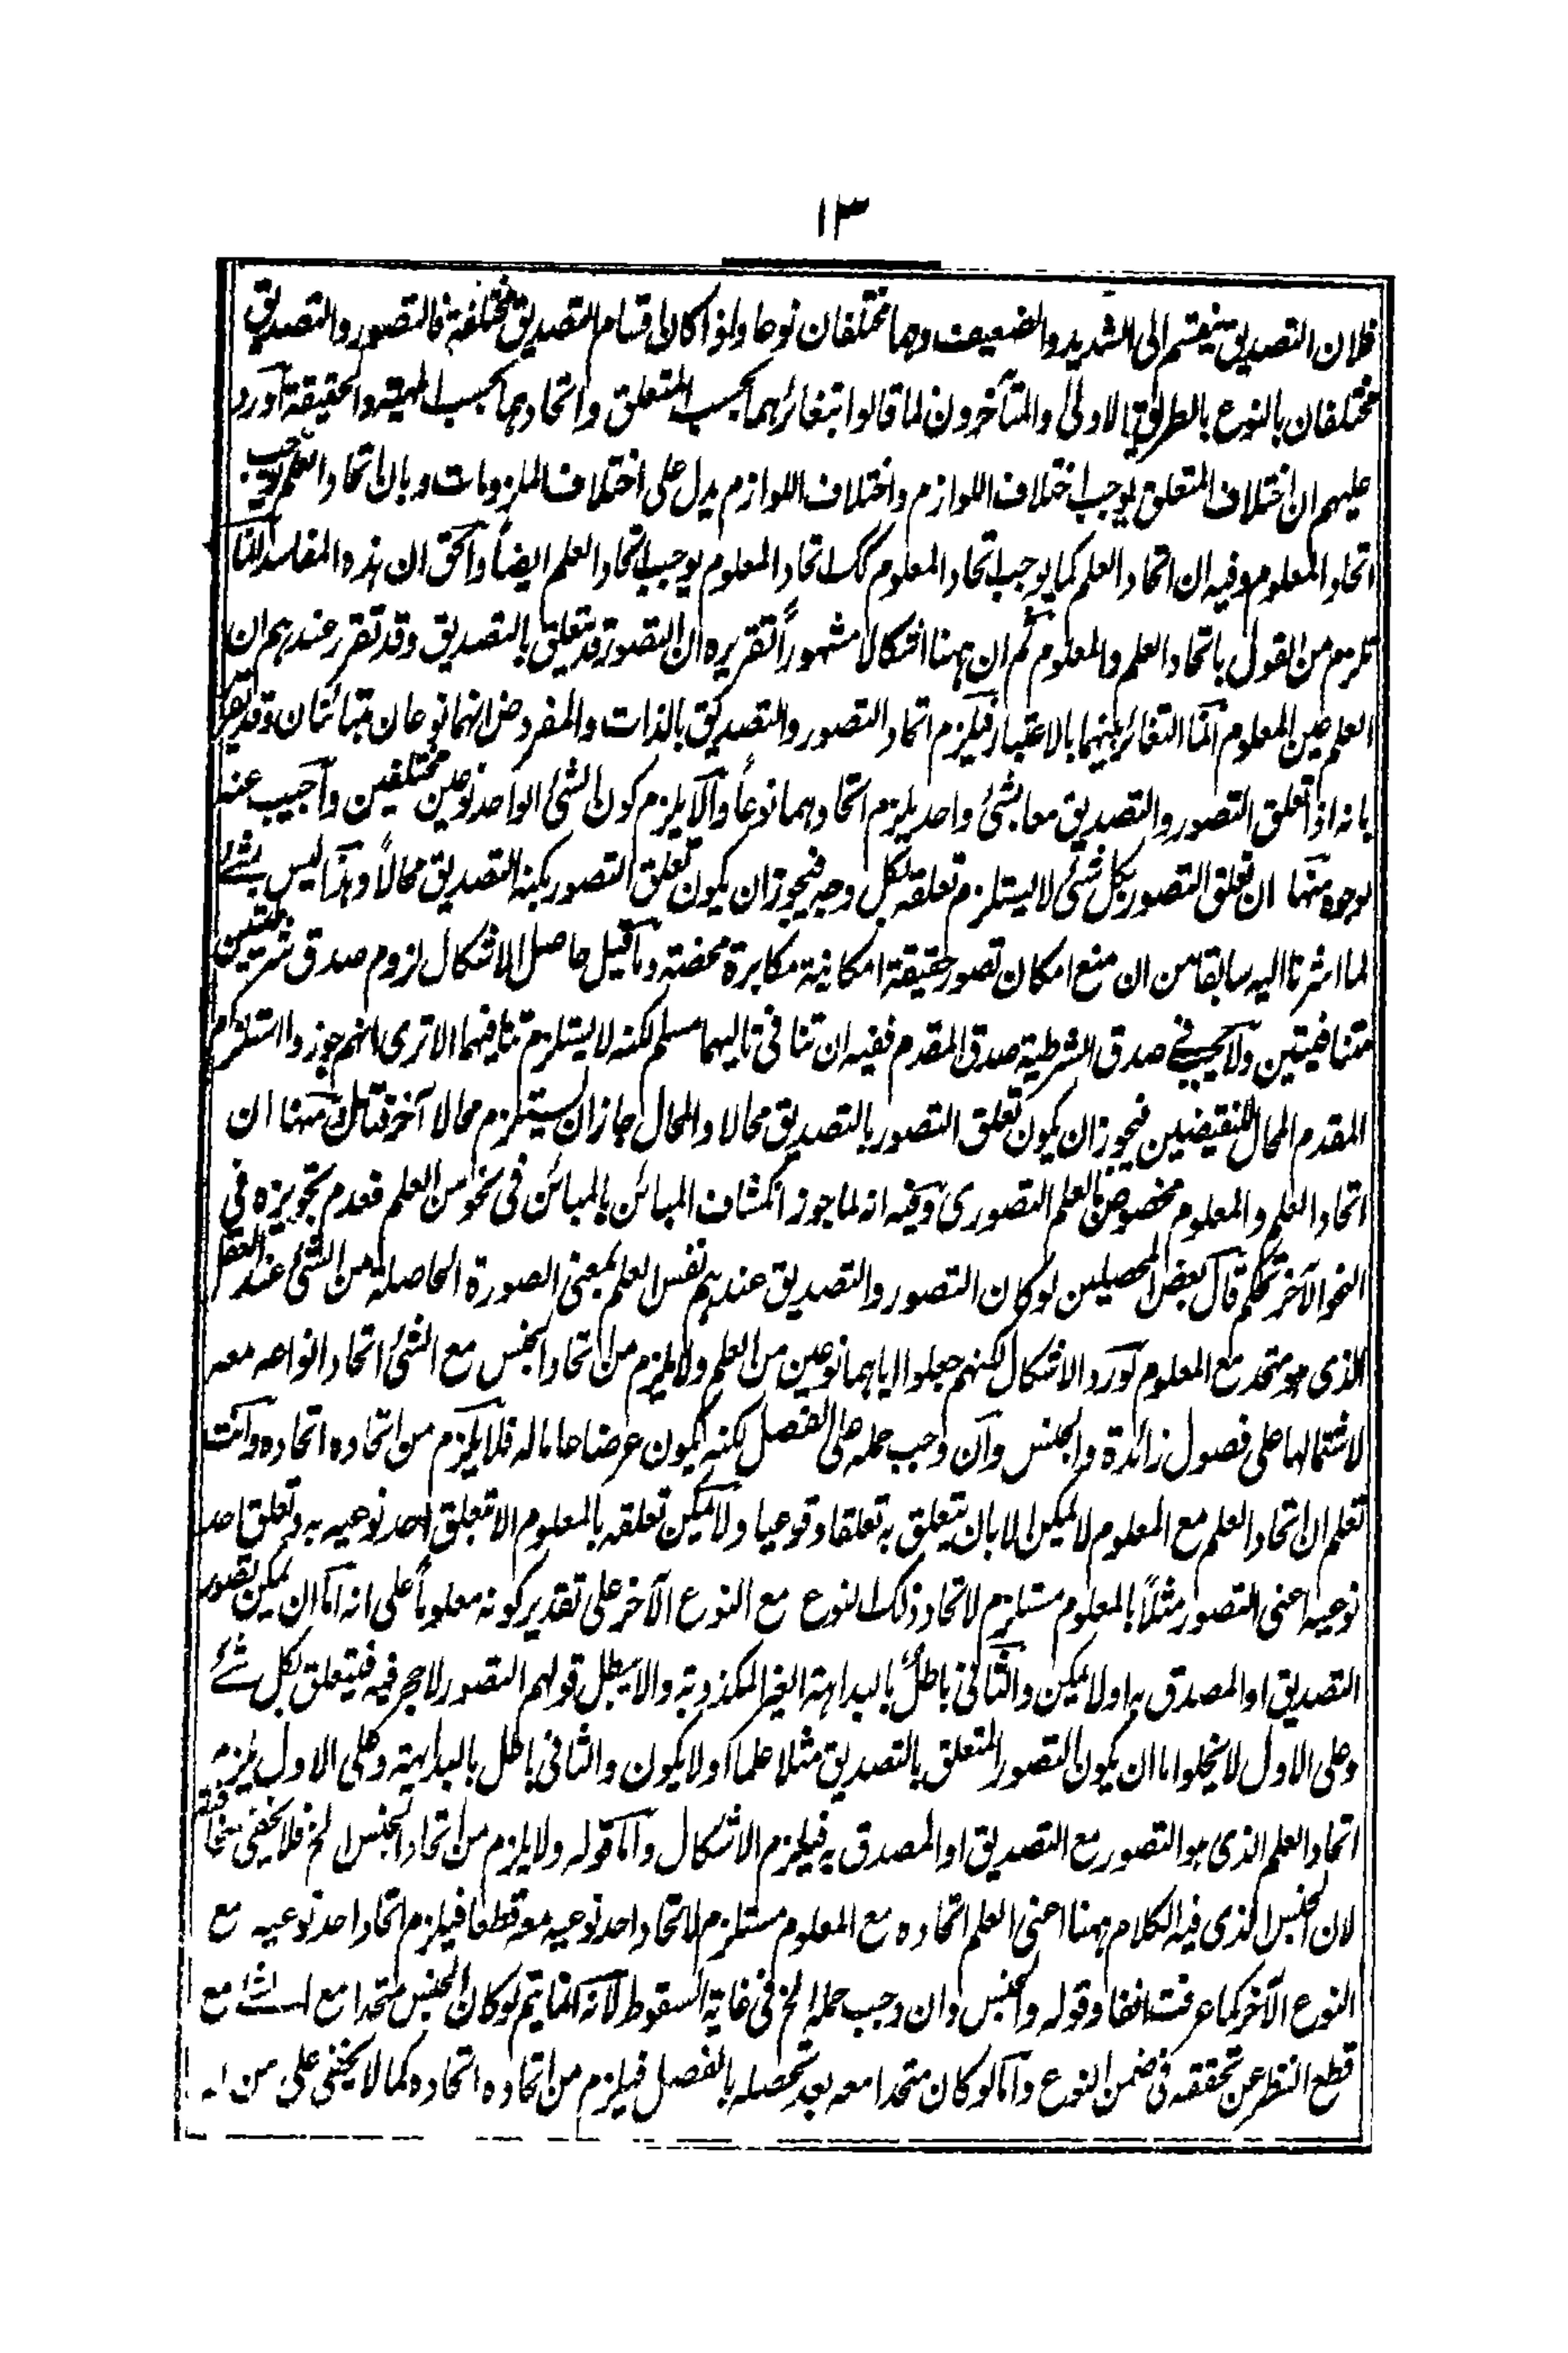 ١٣
فلان التصديق ينقسم الى الشديد والضعيف وهما مختلفان نوعا واذا كان اقسام التصديق مختلفة فالتصور والتصديق
مختلفان بالنوع بالطريق الاولى والمتأخرون لما قالوا بتغائرهما بحسب المتعلق واتحادهما بحسب المهية والحقيقة أورد
عليهم ان اختلاف المتعلق يوجب اختلاف اللوازم واختلاف اللوازم يدل على اختلاف الملزومات وبان اتحاد العلم يوجب
اتحاد المعلوم وفيه ان اتحاد العلم كما يوجب اتحاد المعلوم كك اتحاد المعلوم يوجب اتحاد العلم ايضاً والحق ان هذه المفاسد انما
تلزم من القول باتحاد العلم والمعلوم ثم ان ههنا اشكالا مشهوراً تقريره ان التصور قد يتعلق بالتصديق وقد تقرر عندهم ان
العلم عين المعلوم انما التغائر بينهما بالاعتبار فيلزم اتحاد التصور والتصديق بالذات والمفروض انهما نوعان متبائنان وقد يقرر
بانه اذا تعلق التصور والتصديق معا بشئ واحد يلزم اتحادهما نوعاً والا يلزم كون الشئ الواحد نوعين مختلفين وأجيب عنه
بوجوه منها ان تعلق التصور بكل شئ لا يستلزم تعلقه بكل وجه فيجوز ان يكون تعلق التصور بكنه التصديق محالاً وهذا ليس بشئ
لما اشرنا اليه سابقا من ان منع امكان تصور حقيقة امكانية مكابرة محضة وما قيل حاصل الاشكال لزوم صدق شرطيتين
متنافيتين ولا يجب في صدق الشرطية صدق المقدم ففيه ان تنافى تاليهما مسلم لكنه لا يستلزم تنافيهما الا ترى انهم جوزوا استلزام
المقدم المحال للنقيضين فيجوز ان يكون تعلق التصور بالتصديق محالا والمحال جاز ان يستلزم محالا آخر فتأمل ومنها ان
اتحاد العلم والمعلوم مخصوص بالعلم التصورى وفيه انه لما جوز انكشاف المبائن بالمبائن فى نحو من العلم فعدم تجويزه فى
النحو الآخر تحكم قال بعض المحصلين لو كان التصور والتصديق عندهم نفس العلم بمعنى الصورة الحاصلة من الشئ عند العقل
الذى هو متحد مع المعلوم لورد الاشكال لكنهم جعلوا اياهما نوعين من العلم ولا يلزم من اتحاد الجنس مع الشئ اتحاد انواعه معه
لاشتمالها على فصول زائدة والجنس وان وجب حمله على الفصل لكنه يكون عرضا عاما له فلا يلزم من اتحاده اتحاده وانت
تعلم ان اتحاد العلم مع المعلوم لا يمكن الا بان يتعلق به تعلقا وقوعيا ولا يمكن تعلقه بالمعلوم الا بتعلق احد نوعيه به وتعلق احد
نوعيه اعنى التصور مثلاً بالمعلوم مستلزم لاتحاد ذلك النوع مع النوع الآخر على تقدير كونه معلوماً على انه اما ان يمكن تصور
التصديق او المصدق به او لا يمكن والثانى باطل بالبداهة الغير المكذوبة والا يبطل قولهم التصور لا حجر فيه فيتعلق بكل شئ
وعلى الاول لا يخلوا ما ان يكون التصور المتعلق بالتصديق مثلا علما او لا يكون والثانى باطل بالبداهة وعلى الاول يلزم
اتحاد العلم الذى هو التصور مع التصديق او المصدق به فيلزم الاشكال واما قوله ولا يلزم من اتحاد الجنس الخ فلا يخفى سخافته
لان الجنس الذى فيه الكلام ههنا اعنى العلم اتحاده مع المعلوم مستلزم لاتحاد احد نوعيه معه قطعا فيلزم اتحاد احد نوعيه مع
النوع الآخر كما عرفت انفا وقوله والجنس وان وجب حمله الخ فى غاية السقوط لانه انما يتم لو كان الجنس متحدا مع الشئ مع
قطع النظر عن تحققه فى ضمن النوع واما لو كان متحدا معه بعد تحصله بالفصل فيلزم من اتحاده اتحاده كما لا يخفى على من له